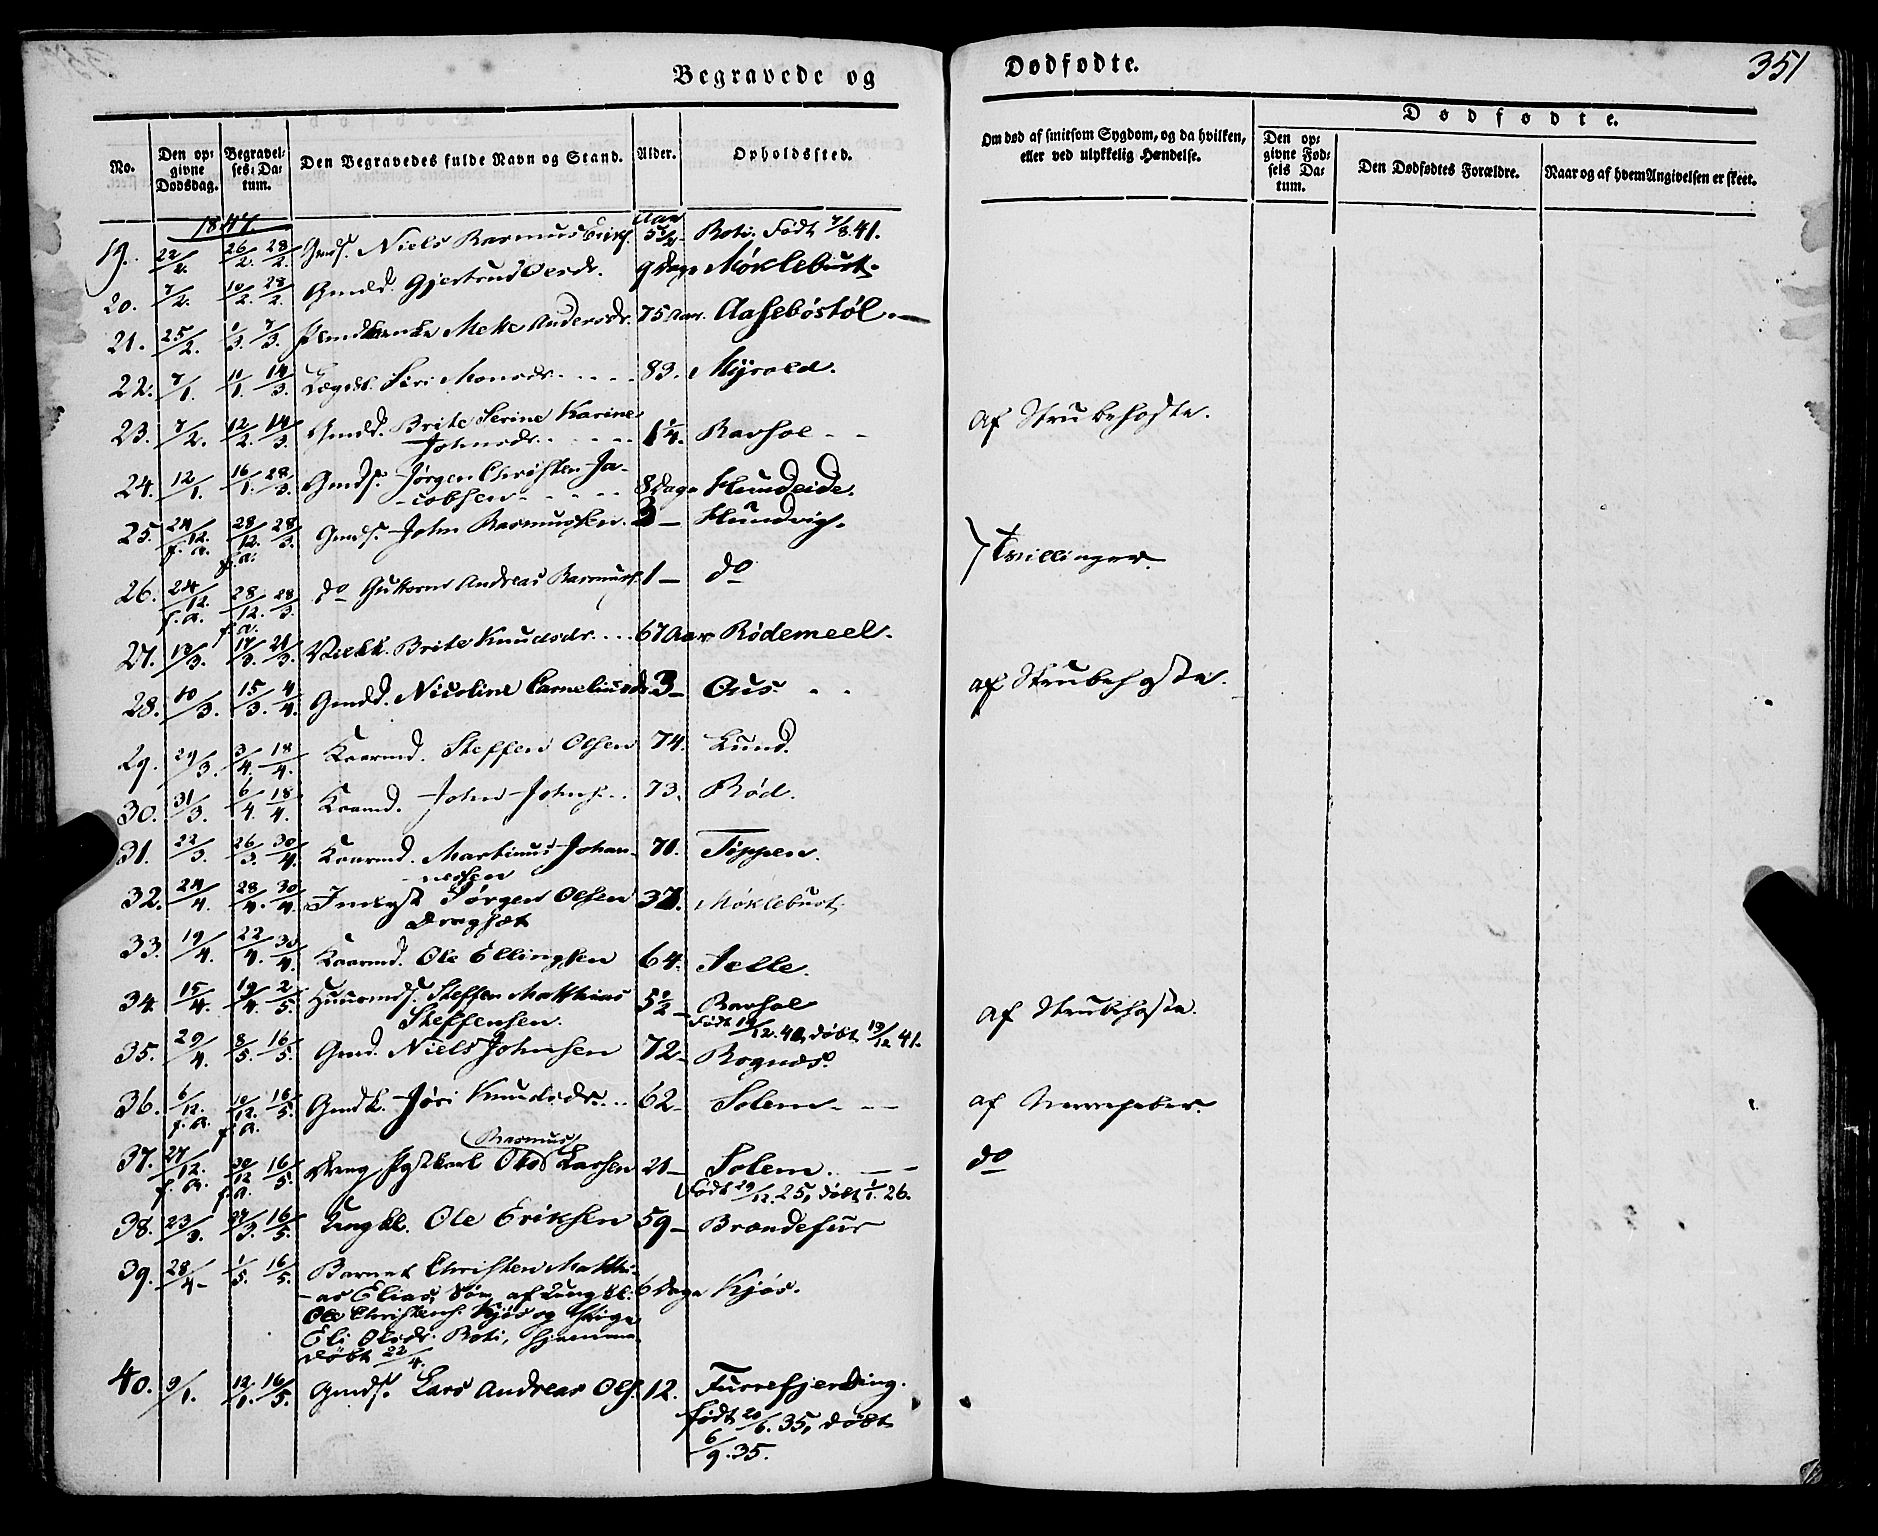 Begravede og
Dødfødte.
351
No.
Den op-
givne
Dødsdag.
Begravel-
ses-Da-
tum.
Den Begravedes fulde Navn og Stand.
Alder.
Opholdssted.
Om død af smitsom Sygdom, og da hvilken,
eller ved ulykkelig Hændelse.
Dødfødte.
Den op-
givne Fød-
sels Da-
tum.
Den Dødfødtes Forældre.
Naar og af hvem Angivelsen er skeet.
1847.
19. 22/2. 26/2. 28/2. Gmds. Niels Rasmus Eriks. Aar 5 1/2 Boti. Født 7/8.41.
20. 7/2. 10/2. 28/2. Gmdd. Gjertrud Oersdr. 9 Dage Møklebust.
21. 25/2. 1/3. 7/3. Mette Andersdr. 75 Aar. Aasebøstøl.
22. 7/1. 11/1. 14/3. Lægdsl. Siri Monsdr. 83. Myrold.
23. 7/2. 12/2. 14/3. Gmdd. Brite Serine Karine
Johnsdr. 1 1/4. Ravhol af Strubehoste.
24. 12/1. 16/1. 28/3. Gmds. Jørgen Christen Ja-
cobsen 8 Dage Hundeide.
25. 24/12. f.a. 28/12. f.a. 28/3. Gmds. John Rasmussen. 3 — Hundvig.
} Tvillinger.
26. 24/12. f.a. 28/12. f.a. 28/3. do Guttorm Andreas Rasmuss. 1 — do
27. 13/3. 17/3. 21/3. Brite Knudsdr. 67 Aar Rødemeel.
28. 10/3. 15/3. 4/4. Gmdd. Nicoline Corneliusdr. 3 — Ous. af Strubehoste.
29. 29/3. 3/4. 18/4. Kaarmd. Steffen Olsen 74. Lund.
30. 31/3. 6/4. 18/4. Kaarmd. John Johns. 73. Rød.
31. 22/3. 26/3. 30/4. Kaarmd. Martinus Johan-
nessen 71. Tøppen.
32. 24/4. 28/4. 30/4. Inderst Jørgen Olsen
Dragsæt 37. Møklebust.
33. 19/4. 22/4. 30/4. Kaarmd. Ole Ellingsen 64. Telle.
34. 15/4. 19/4. 2/5. Huusmds. Steffen Matthias
Steffensen. 5 1/2 — Ravhol af Strubehoste.
Født 19/12.40, døbt 13/12 41.
35. 29/4. 8/5. 16/5. Gmd. Niels Johnsen 72 — Rognæs.
36. 6/12. f.a. 10/12. f.a. 16/5. Gmdk. Jøri Knudsdr. 62 — Solem af Nervefeber.
37. 27/12. f.a. 30/12 f.a. 16/5. (Rasmus)
Larsen 21 — Solem. do
Født 29/12.25, døbt 1/1. 26.
38. 23/3. 27/3. 16/5. Ungkl. Ole Eriksen 59 — Brandefur
39. 28/4 — 1/5. 16/5. Barnet Christen Matthi-
as Elias, Søn af Ungkl. 6 Dage Kjøs.
Ole Christens. Kjøs og Pige
Eli Olsdr. Boti, hjemme-
døbt 22/4.
40. 9/1. 12/1. 16/5. Gmds. Lars Andreas Ols. 12. Furrefjerding.
født 20/6. 35, døbt
6/9. 35.